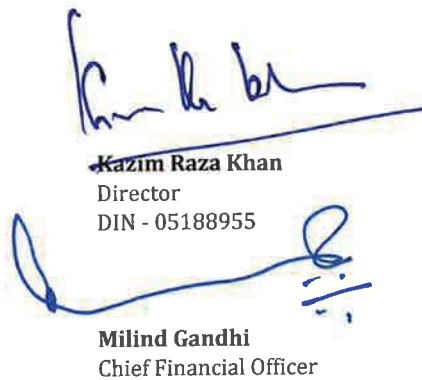 Kazim Raza Khan
Director
DIN - 05188955
Milind Gandhi
Chief Financial Officer